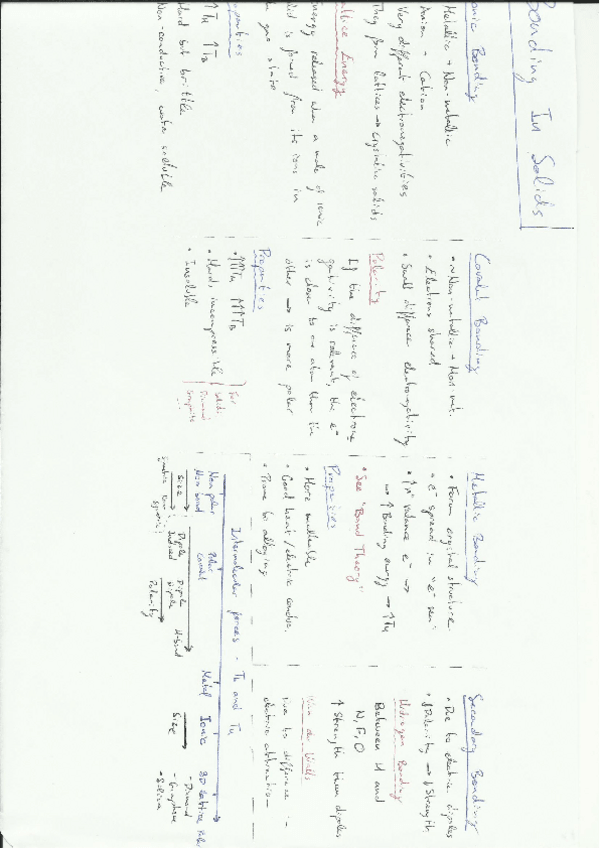 Bonding In Solids
Ionic Bonding
Metallic + Non-metallic
Anion - Cation
Very different electronegativities
They form lattices → crystalline solids
Lattice Energy
Energy released when a mole of ionic
solid is formed from its ions in
gas state
Properties
↑TM ↑TB
Hard but brittle
Non-conductive, water soluble
Covalent Bonding
• Non-metallic + Non met.
• Electrons shared
• Small difference electronegativity
Polarity
If the difference of electrone
gativity is relevant, the e⁻
is closer to one atom than the
other → is more polar
Properties
• ↑↑↑TM ↑↑↑TB
• Hard, incompressible
• Insoluble
For
solids
Diamond
Graphite
Metallic Bonding
• Form crystal structure
• e⁻ spread in "e⁻ sea"
• ↑nº valence e⁻ →
→ ↑ Bonding energy → ↑TM
• See "Band Theory"
Properties
• More malleable
• Good heat/electric conduc.
• Prone to alloying
Secondary Bonding
• Due to electric dipoles
• ↓Polarity → ↓ Strength
Hydrogen Bonding
Between H and
N, F, O
↑ Strength than dipoles
Van der Waals
Due to difference in
electric attraction
Intermolecular forces - TB and TM
Non polar
Polar
coval
Metal
Ionic
3D lattice
Size
Dipole
Induced
Dipole
Dipole
H-bond
Polarity
Size
- Diamond
- Graphene
- Silica